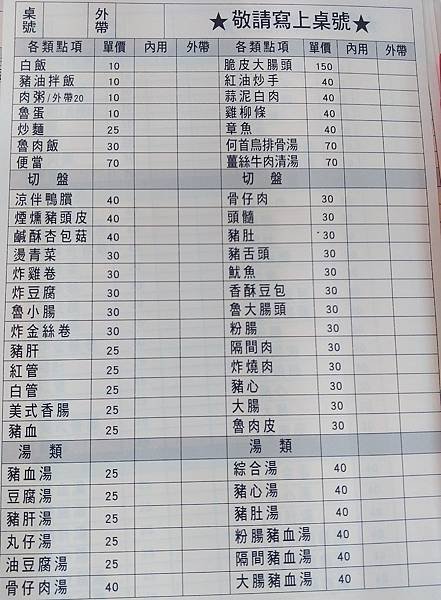 桌號 外帶 ★敬請寫上桌號★
各類點項 單價 內用 外帶 各類點項 單價 內用 外帶
白飯 10 脆皮大腸頭 150
豬油拌飯 10 紅油炒手 40
肉粥/外帶20 10 蒜泥白肉 40
魯蛋 10 雞柳條 40
炒麵 25 章魚 40
魯肉飯 30 何首烏排骨湯 70
便當 70 薑絲牛肉清湯 70
切盤 切盤
涼伴鴨臏 40 骨仔肉 30
煙燻豬頭皮 40 頭髓 30
鹹酥杏包菇 40 豬肚 30
燙青菜 30 豬舌頭 30
炸雞卷 30 魷魚 30
炸豆腐 30 香酥豆包 30
魯小腸 30 魯大腸頭 30
炸金絲卷 30 粉腸 30
豬肝 25 隔間肉 30
紅管 25 炸燒肉 30
白管 25 豬心 30
美式香腸 25 大腸 30
豬血 25 魯肉皮 30
湯類 湯類
豬血湯 25 綜合湯 40
豆腐湯 25 豬心湯 40
豬肝湯 25 豬肚湯 40
丸仔湯 25 粉腸豬血湯 40
油豆腐湯 25 隔間豬血湯 40
骨仔肉湯 40 大腸豬血湯 40